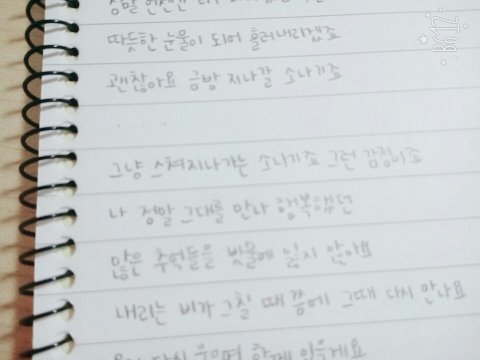 정말 언젠간
따뜻한 눈물이 되어 흘러내리겠죠
괜찮아요 금방 지나갈 소나기죠
그냥 스쳐지나가는 소나기죠 그런 감정이죠
나 정말 그대를 만나 행복했던
많은 추억들을 빗물에 잃지 않아요
내리는 비가 그칠 때쯤에 그때 다시 만나요
다시 웃으며 함께 있을게요
B612